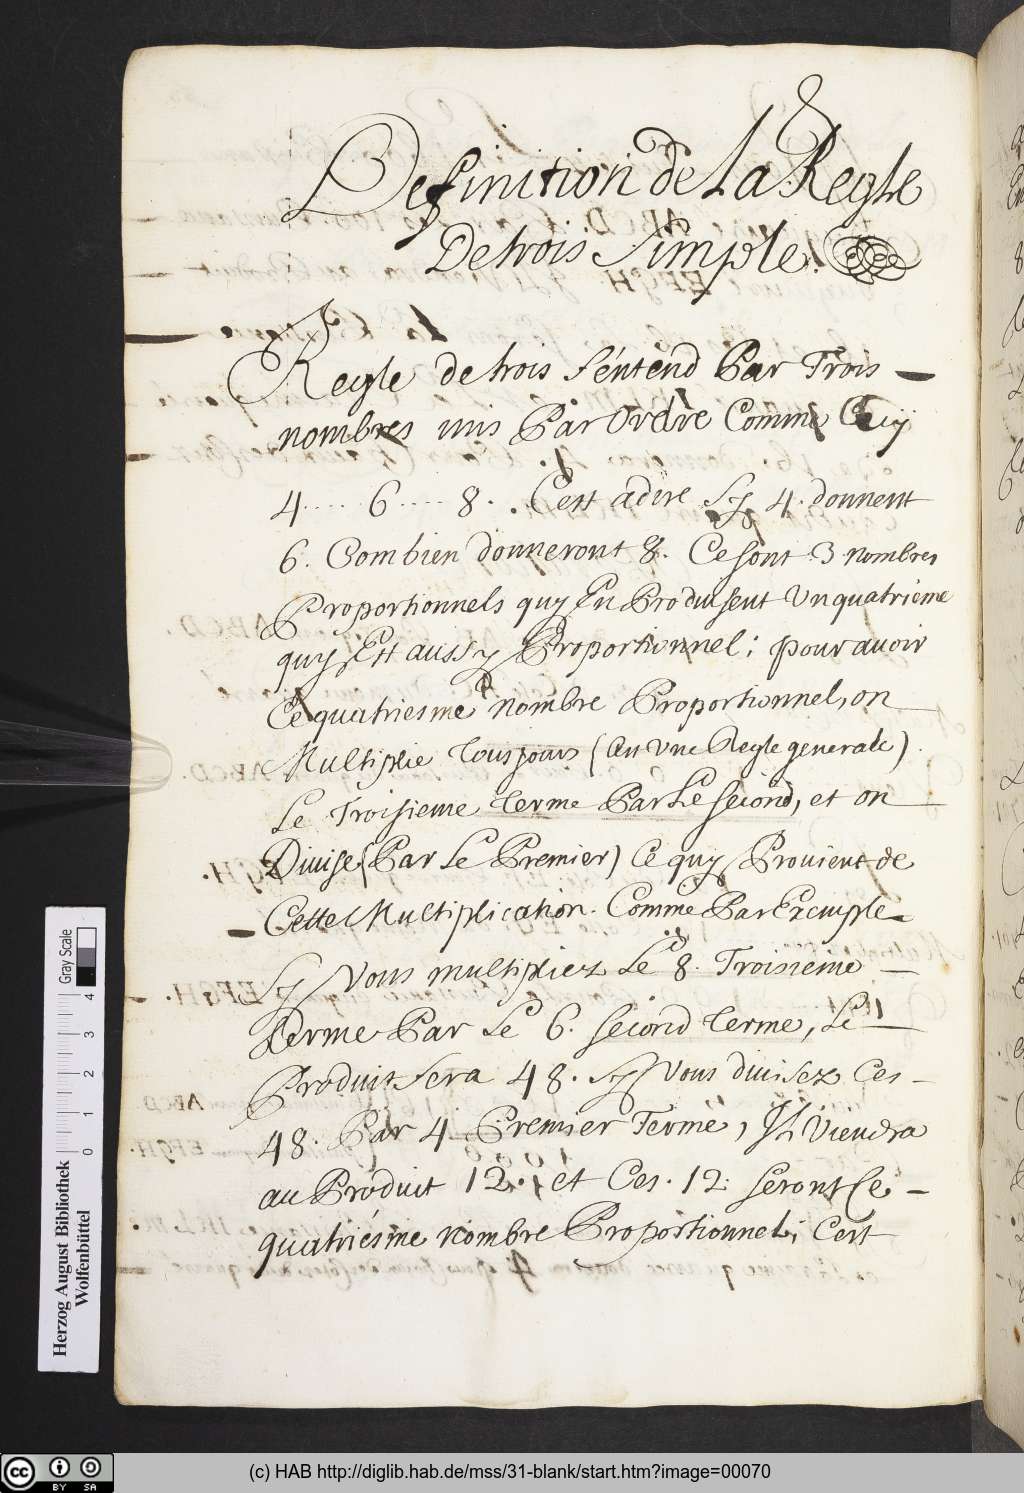 Definition de La Regle
De trois Simple.
Regle de trois s'entend Par Trois
nombres mis Par Ordre Comme Cecy
4 .... 6 .... 8 . . C'est adire Sy 4. donnent
6. Combien donneront 8. Ce sont 3 nombres
Proportionnels quy En Produisent Un quatrieme
quy Est aussy Proportionnel; pour avoir
Ce quatriesme nombre Proportionnel, on
Multiplie Tousjours (En Une Regle generale)
Le Troisieme terme Par Le second, et on
Divise (Par Le Premier) Ce quy Provient de
Cette Multiplication. Comme Par Exemple
Sy Vous multipliez Le 8. Troisieme
Terme Par Le 6. second terme, Le
Produit Sera 48. Sy Vous divisez Ces
48. Par 4 Premier Terme, Il Viendra
au Produit 12. et Ces. 12. seront Le
quatriésme nombre Proportionnel; C'est
Gray Scale
0 1 2 3 4
Herzog August Bibliothek
Wolfenbüttel
cc BY SA
(c) HAB http://diglib.hab.de/mss/31-blank/start.htm?image=00070